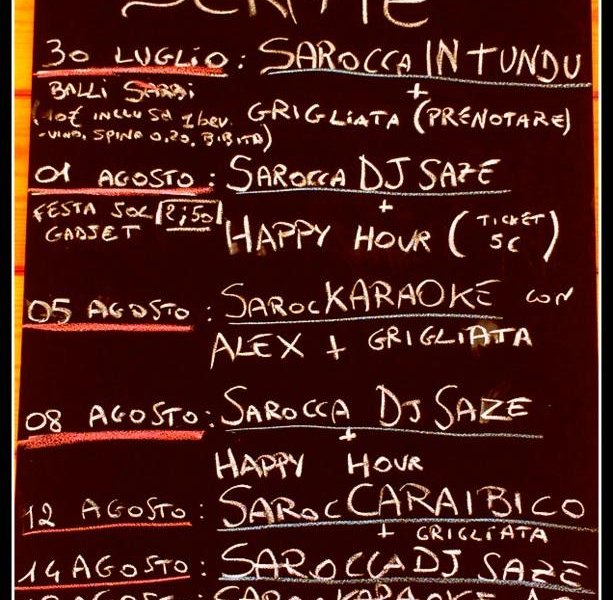 SERATE
30 LUGLIO: SAROCCA IN TUNDU
BALLI SARDI +
(10€ INCLUSA 1 bev. GRIGLIATA (PRENOTARE)
-VINO, SPINA 0,20, BIBITA)
01 AGOSTO: SAROCCA DJ SAZE
+
FESTA SOL 2;50 HAPPY HOUR (TICKET
GADJET 5€)
05 AGOSTO: SAROCKARAOKE CON
ALEX + GRIGLIATA
08 AGOSTO: SAROCCA DJ SAZE
+
HAPPY HOUR
12 AGOSTO: SAROCCARAIBICO
+ GRIGLIATA
14 AGOSTO: SAROCCA DJ SAZE
AGOSTO: SAROCKARAOKE